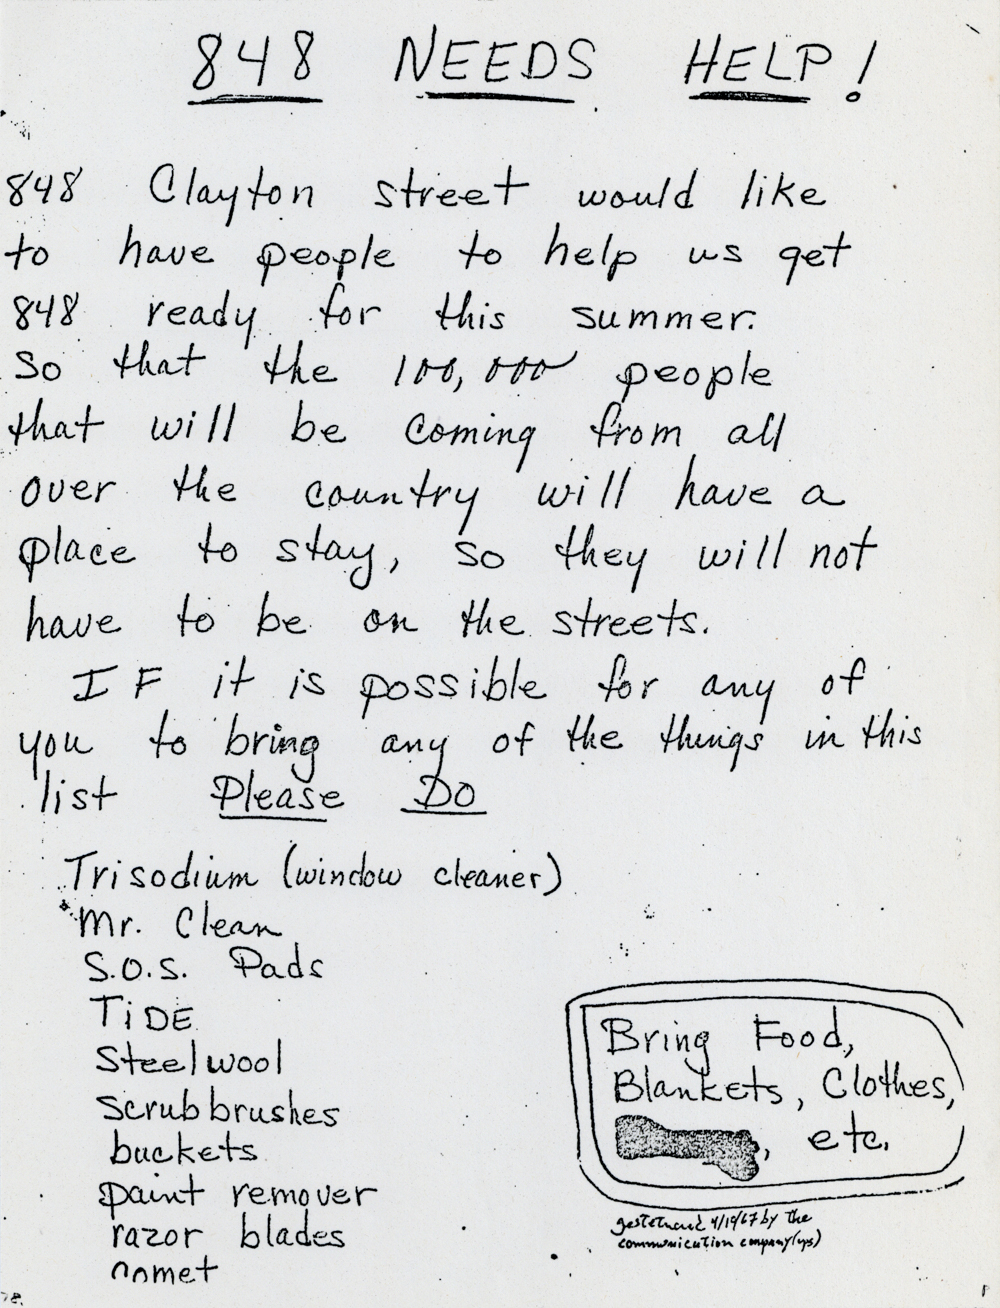 848 NEEDS HELP!
848 Clayton street would like
to have people to help us get
848 ready for this summer.
So that the 100,000 people
that will be coming from all
over the country will have a
place to stay, so they will not
have to be on the streets.
IF it is possible for any of
you to bring any of the things in this
list Please Do
Trisodium (window cleaner)
Mr. Clean
S.O.S. Pads
TiDE
Steel wool
scrub brushes
buckets
paint remover
razor blades
comet
Bring Food,
Blankets, Clothes,
, etc.
gestetnered 4/19/67 by the
communication company (ups)